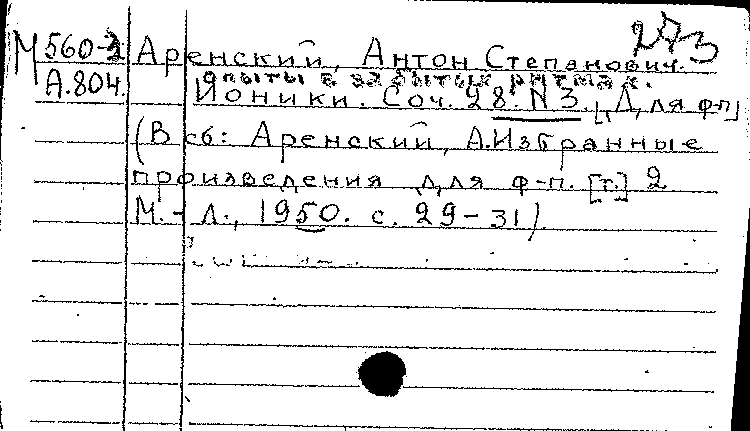 273
М560-2 Аренский, Антон Степанович.
А.804. Опыты в забытых ритмах.
Ионики. Соч. 28. N3. [Для ф-п]
(В сб: Аренский, А. Избранные
произведения для ф-п. [т.] 2
М.-Л., 1950. с. 29-31)